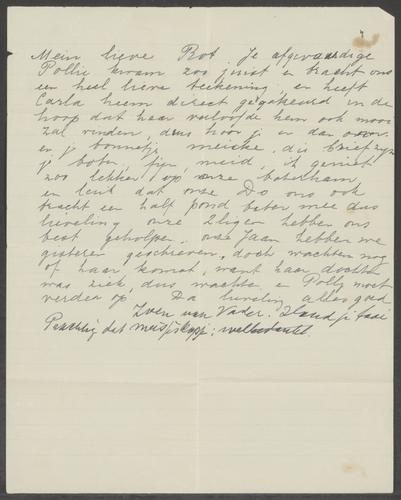 Mein lieve Bot Je afgevaardige
Pollie kwam zoo juist en bracht ons
een heel lieve teekening, en heeft
Carla hem direct gegakeurd in de
hoop dat haar verloofde hem ook mooi
zal vinden, dus hoor je er dan over
en je bonnetje meiske, dis brief zyn
je boter, fijn meid, ik geniet
zoo lekker op onze boterham,
en leuk dat onze Do ons ook
bracht een half pond boter mee dus
lieveling onze 2 lijsen hebben ons
best geholpen, onse Jaan hebben we
gisteren geschreven, doch wachten nog
of haar komst, want haar dochter
was ziek, dus wachte en Polly moet
verder op Da lieveling alles goed
Zven van Vader. Houd je taai
Prachtig dat meisjskopje; welbedankt.